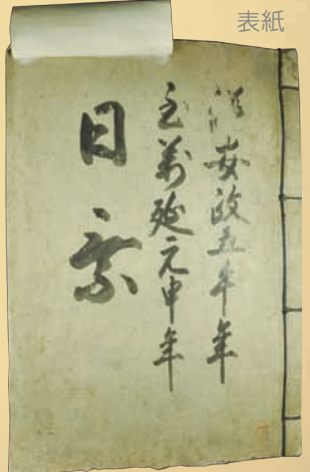 表紙
從安政五午年
至萬延元申年
日乗